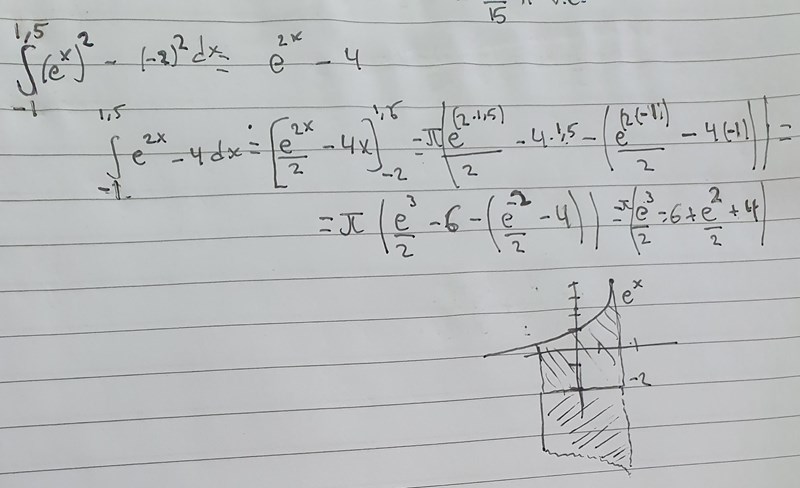 15
∫_{-1}^{1,5} (e^x)^2 - (-2)^2 dx = e^{2x} - 4
∫_{-1}^{1,5} e^{2x} - 4 dx = [e^{2x}/2 - 4x]_{-2}^{1,5} = π(e^{(2·1,5)}/2 - 4·1,5 - (e^{(2(-1))}/2 - 4(-1))) =
= π(e^3/2 - 6 - (e^{-2}/2 - 4)) = π(e^3/2 - 6 + e^2/2 + 4)
e^x
1
-2